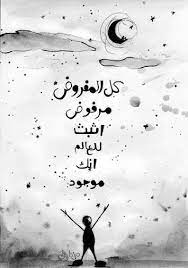 كل المفروض
مرفوض
اثبت
للعالم
انك
موجود